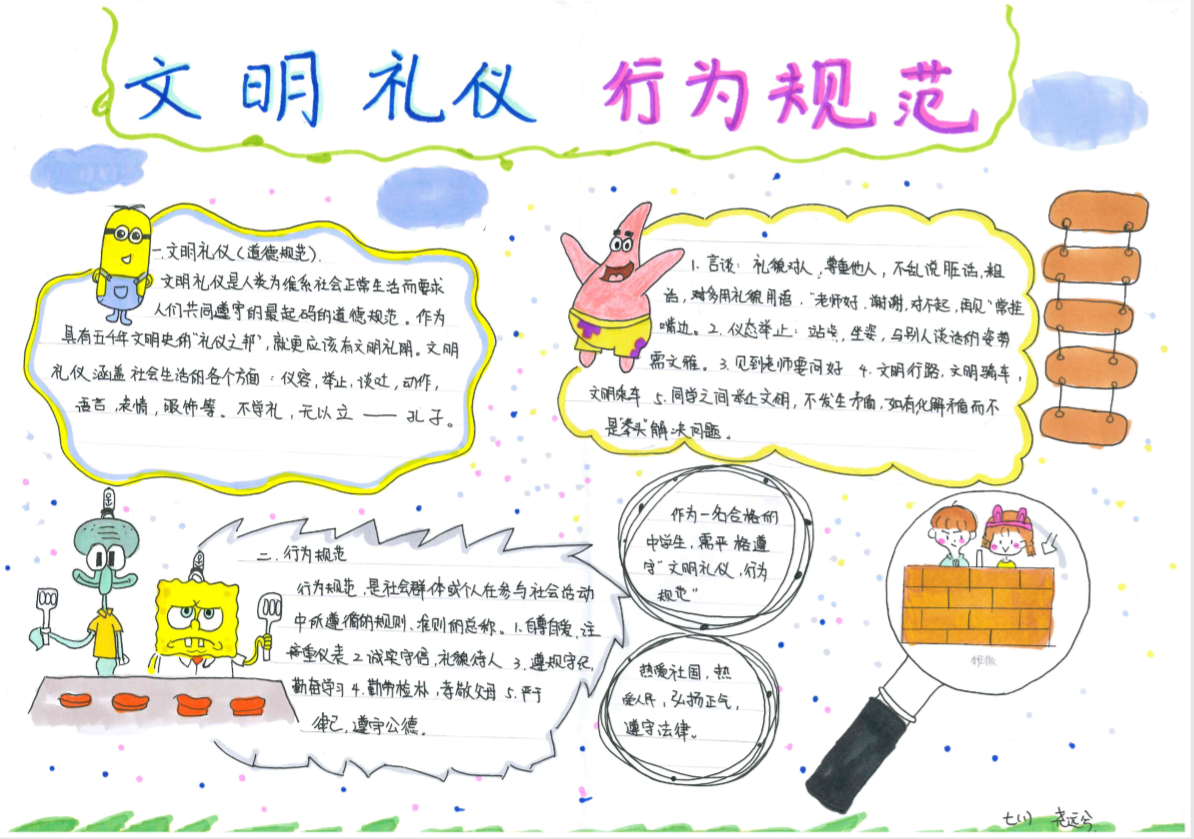 文明礼仪 行为规范
一.文明礼仪(道德规范).
文明礼仪是人类为维系社会正常生活而要求
人们共同遵守的最起码的道德规范。作为
具有五千年文明史的"礼仪之邦",就更应该有文明礼明。文明
礼仪涵盖社会生活的各个方面:仪容,举止,谈吐,动作,
语言,表情,服饰等。不学礼,无以立 —— 孔子。
1. 言谈: 礼貌对人,尊重他人,不乱说脏话,粗
话,对多用礼貌用语,"老师好,谢谢,对不起,再见"常挂
嘴边。2. 仪态举止: 站姿,坐姿,与别人谈话的姿势
需文雅。3. 见到老师要问好 4. 文明行路,文明骑车,
文明乘车 5. 同学之间举止文明,不发生矛盾,如有化解矛盾而不
是"拳头"解决问题。
二. 行为规范
行为规范,是社会群体或个人在参与社会活动
中所遵循的规则、准则的总称。1. 自尊自爱,注
重仪表 2 诚实守信,礼貌待人 3. 遵规守纪,
勤奋学习 4. 勤劳俭朴,孝敬父母 5. 严于
律己,遵守公德。
作为一名合格的
中学生,需严格遵
守"文明礼仪,行为
规范"
热爱祖国,热
爱人民,弘扬正气,
遵守法律。
七(1)